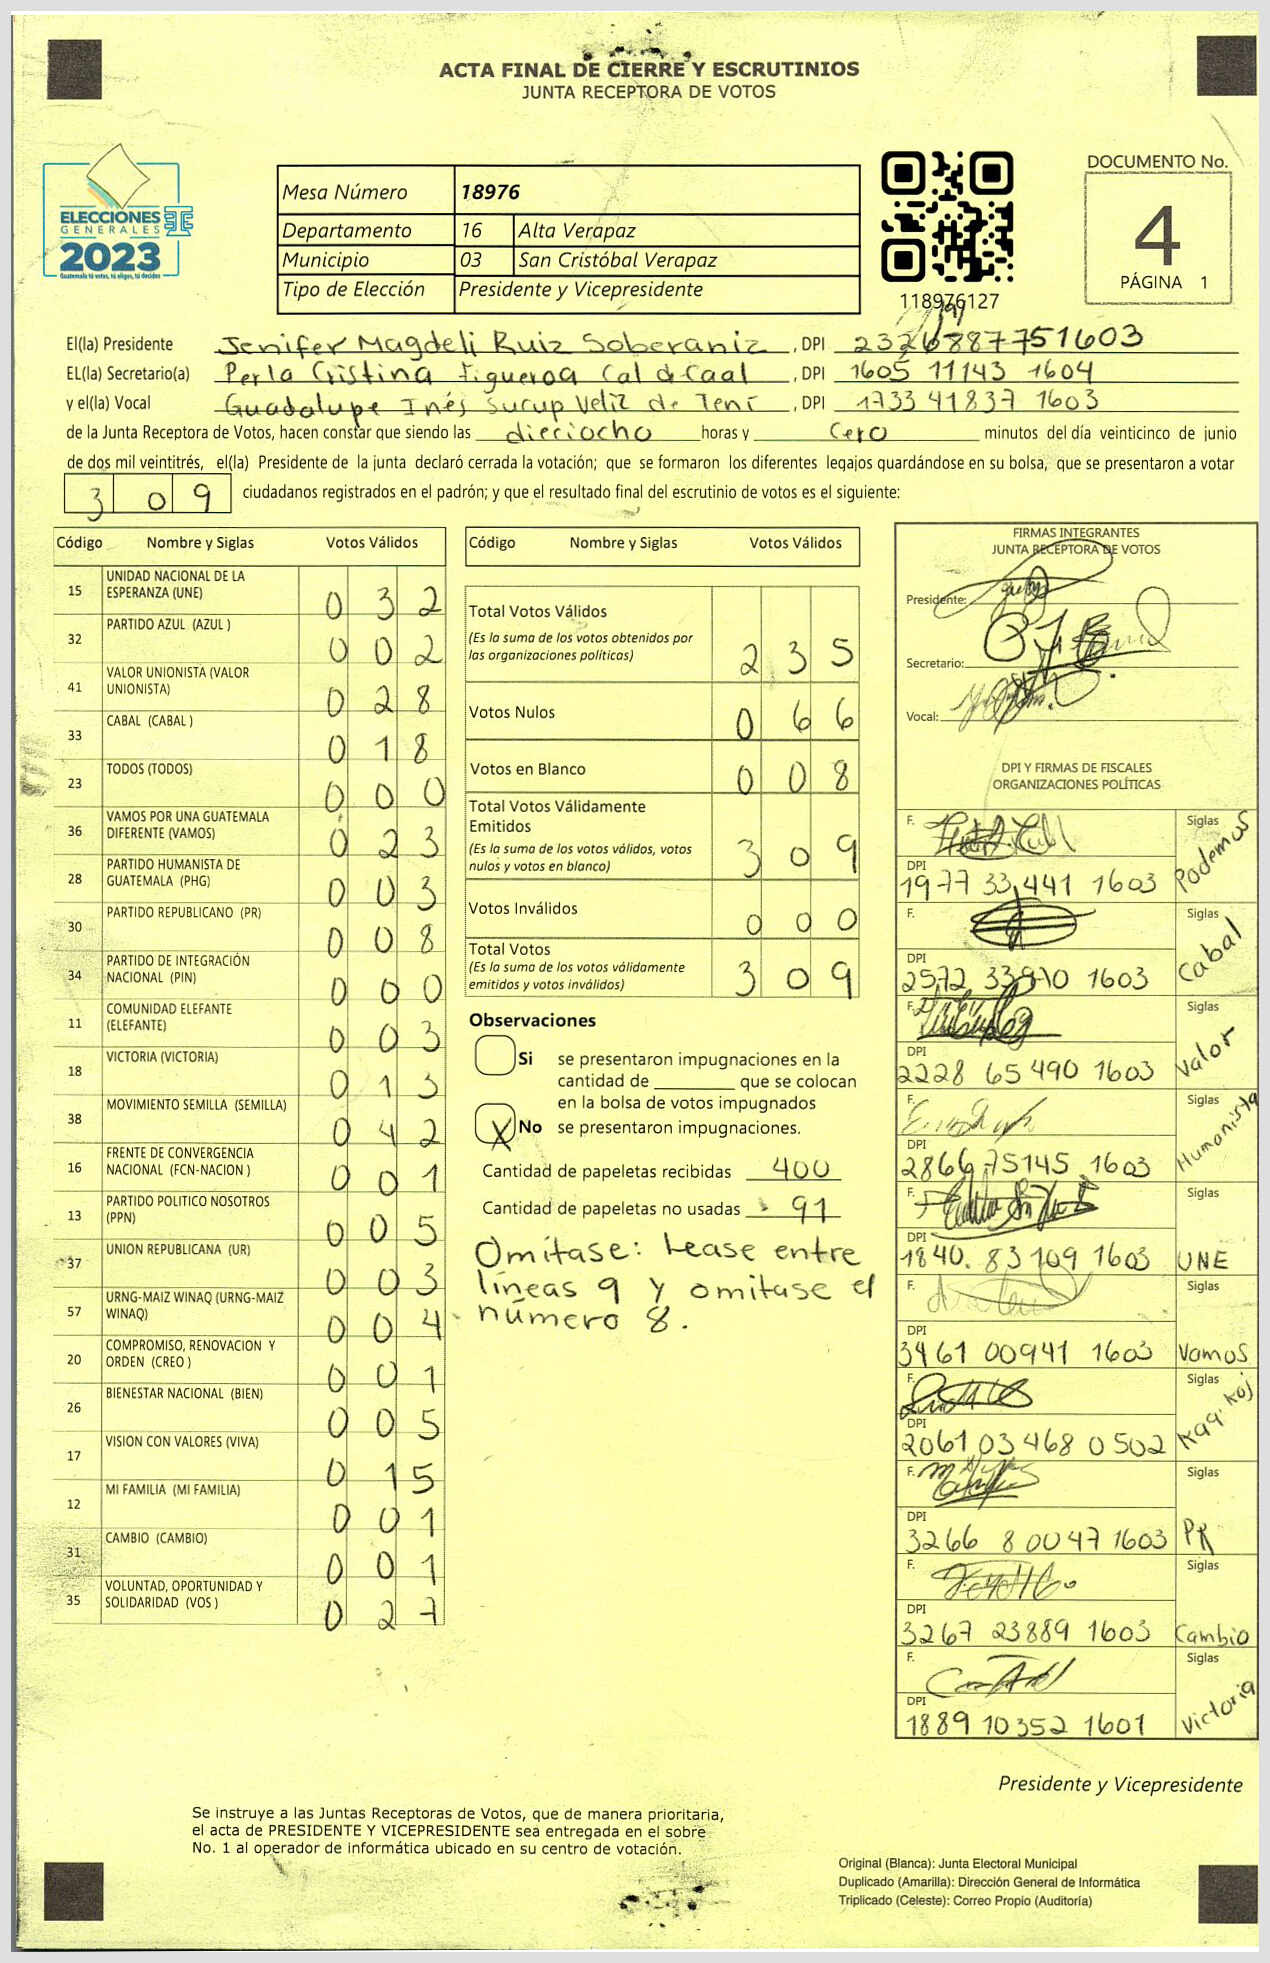 ACTA FINAL DE CIERRE Y ESCRUTINIOS
JUNTA RECEPTORA DE VOTOS
ELECCIONES
GENERALES
2023
Guatemala tú votas, tú eliges, tú decides
Mesa Número 18976
Departamento 16 Alta Verapaz
Municipio 03 San Cristóbal Verapaz
Tipo de Elección Presidente y Vicepresidente
118976127
DOCUMENTO No.
4
PÁGINA 1
El(la) Presidente Jenifer Magdeli Ruiz Soberaniz, DPI
EL(la) Secretario(a) Perla Cristina Figueroa Cal de Caal, DPI 1605 11143 1604
y el(la) Vocal Guadalupe Inés Sucup Veliz de Tení, DPI 1733 41837 1603
de la Junta Receptora de Votos, hacen constar que siendo las dieciocho horas y cero minutos del día veinticinco de junio
de dos mil veintitrés, el(la) Presidente de la junta declaró cerrada la votación; que se formaron los diferentes legajos quardándose en su bolsa, que se presentaron a votar
3 0 9 ciudadanos registrados en el padrón; y que el resultado final del escrutinio de votos es el siguiente:
Código Nombre y Siglas Votos Válidos
15 UNIDAD NACIONAL DE LA ESPERANZA (UNE) 0 3 2
32 PARTIDO AZUL (AZUL ) 0 0 2
41 VALOR UNIONISTA (VALOR UNIONISTA) 0 2 8
33 CABAL (CABAL ) 0 1 8
23 TODOS (TODOS) 0 0 0
36 VAMOS POR UNA GUATEMALA DIFERENTE (VAMOS) 0 2 3
28 PARTIDO HUMANISTA DE GUATEMALA (PHG) 0 0 3
30 PARTIDO REPUBLICANO (PR) 0 0 8
34 PARTIDO DE INTEGRACIÓN NACIONAL (PIN) 0 0 0
11 COMUNIDAD ELEFANTE (ELEFANTE) 0 0 3
18 VICTORIA (VICTORIA) 0 1 3
38 MOVIMIENTO SEMILLA (SEMILLA) 0 4 2
16 FRENTE DE CONVERGENCIA NACIONAL (FCN-NACION ) 0 0 1
13 PARTIDO POLITICO NOSOTROS (PPN) 0 0 5
37 UNION REPUBLICANA (UR) 0 0 3
57 URNG-MAIZ WINAQ (URNG-MAIZ WINAQ) 0 0 4
20 COMPROMISO, RENOVACION Y ORDEN (CREO ) 0 0 1
26 BIENESTAR NACIONAL (BIEN) 0 0 5
17 VISION CON VALORES (VIVA) 0 1 5
12 MI FAMILIA (MI FAMILIA) 0 0 1
31 CAMBIO (CAMBIO) 0 0 1
35 VOLUNTAD, OPORTUNIDAD Y SOLIDARIDAD (VOS ) 0 2 7
Código Nombre y Siglas Votos Válidos
Total Votos Válidos 2 3 5
(Es la suma de los votos obtenidos por
las organizaciones políticas)
Votos Nulos 0 6 6
Votos en Blanco 0 0 8
Total Votos Válidamente
Emitidos 3 0 9
(Es la suma de los votos válidos, votos
nulos y votos en blanco)
Votos Inválidos 0 0 0
Total Votos 3 0 9
(Es la suma de los votos válidamente
emitidos y votos inválidos)
Observaciones
Si se presentaron impugnaciones en la
cantidad de ________ que se colocan
en la bolsa de votos impugnados
X No se presentaron impugnaciones.
Cantidad de papeletas recibidas 400
Cantidad de papeletas no usadas 91
Omítase: Lease entre
líneas 9 y omitase el
número 8.
FIRMAS INTEGRANTES
JUNTA RECEPTORA DE VOTOS
Presidente:
Secretario:
Vocal:
DPI Y FIRMAS DE FISCALES
ORGANIZACIONES POLÍTICAS
F. Siglas Podemos
DPI 1977 33441 1603
F. Siglas Cabal
DPI 2572 33970 1603
F. Siglas Valor
DPI 2228 65490 1603
F. Siglas Humanista
DPI 2866 75145 1603
F. Siglas UNE
DPI 1840 83109 1603
F. Siglas Vamos
DPI 3461 00941 1603
F. Siglas
DPI 2061 03468 0502
F. Siglas PR
DPI 3266 80047 1603
F. Siglas Cambio
DPI 3267 23889 1603
F. Siglas Victoria
DPI 1889 10352 1601
Presidente y Vicepresidente
Se instruye a las Juntas Receptoras de Votos, que de manera prioritaria,
el acta de PRESIDENTE Y VICEPRESIDENTE sea entregada en el sobre
No. 1 al operador de informática ubicado en su centro de votación.
Original (Blanca): Junta Electoral Municipal
Duplicado (Amarilla): Dirección General de Informática
Triplicado (Celeste): Correo Propio (Auditoría)